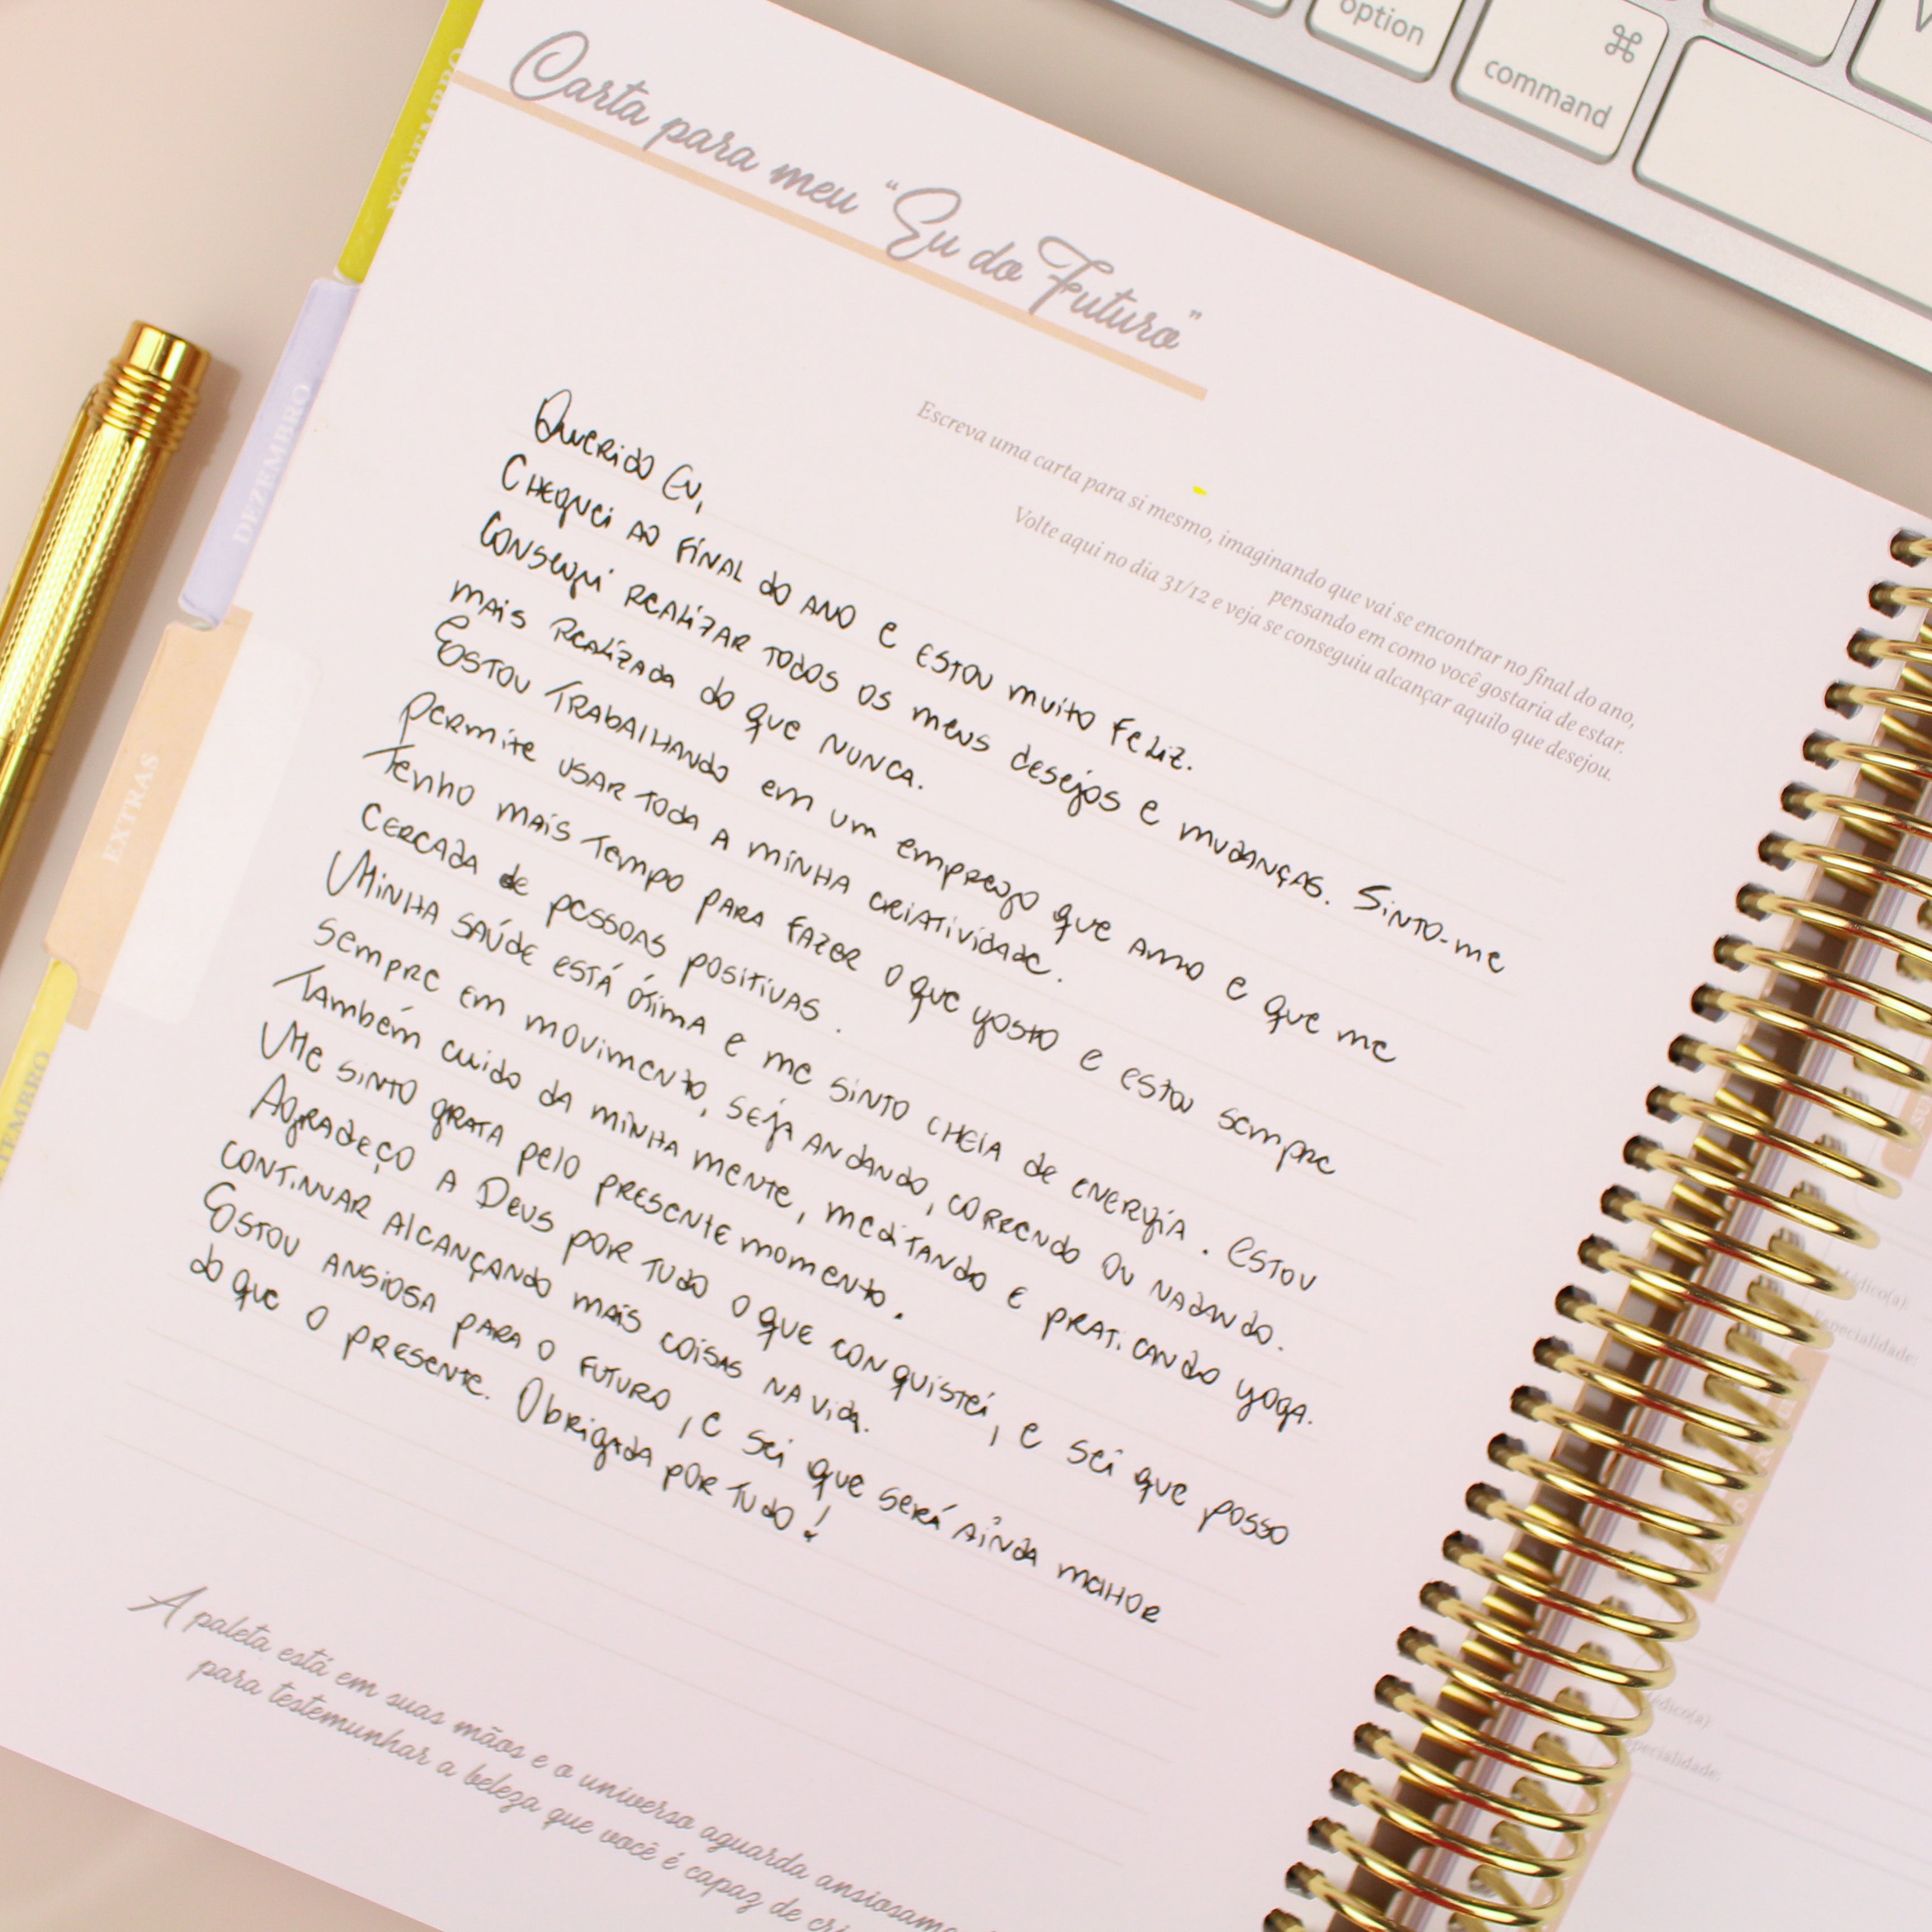 option
⌘
command
NOVEMBRO
Carta para meu "Eu do Futuro"
Escreva uma carta para si mesmo, imaginando que vai se encontrar no final do ano,
pensando em como você gostaria de estar.
Volte aqui no dia 31/12 e veja se conseguiu alcançar aquilo que desejou.
DEZEMBRO
EXTRAS
Querido Eu,
Cheguei ao final do ano e estou muito feliz.
Consegui realizar todos os meus desejos e mudanças. Sinto-me
mais realizada do que nunca.
Estou trabalhando em um emprego que amo e que me
permite usar toda a minha criatividade.
Tenho mais tempo para fazer o que gosto e estou sempre
cercada de pessoas positivas.
Minha saúde está ótima e me sinto cheia de energia. Estou
sempre em movimento, seja andando, correndo ou nadando.
Também cuido da minha mente, meditando e praticando yoga.
Me sinto grata pelo presente momento.
Agradeço a Deus por tudo o que conquistei, e sei que posso
continuar alcançando mais coisas na vida.
Estou ansiosa para o futuro, e sei que será ainda melhor
do que o presente. Obrigada por tudo!
A paleta está em suas mãos e o universo aguarda
para testemunhar a beleza que você é capaz de
Médico(a):
Especialidade: